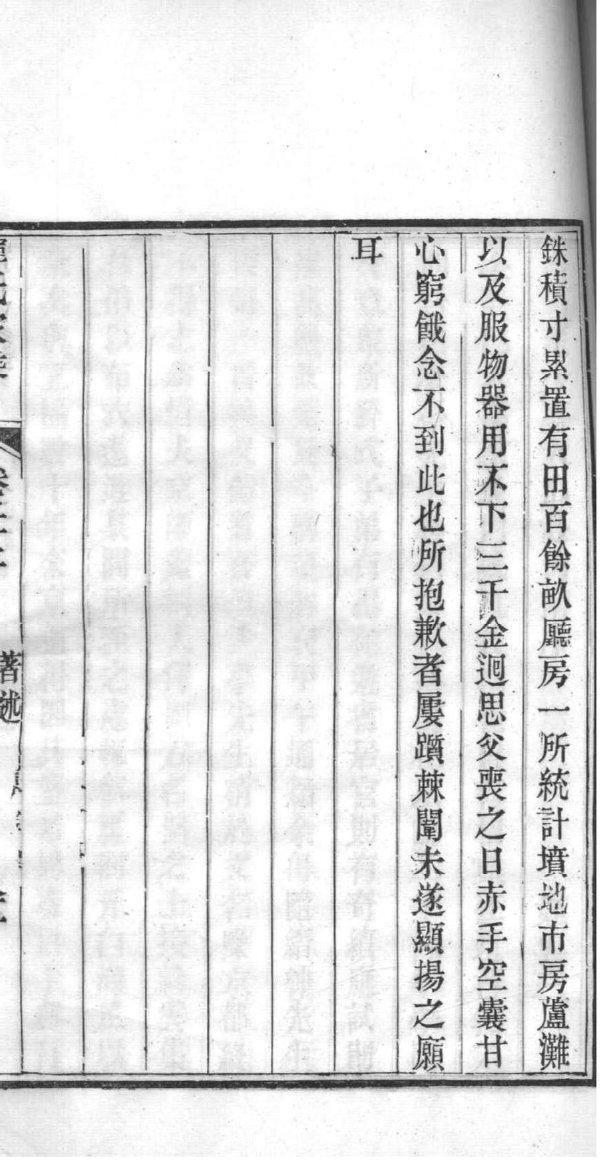 銖積寸累置有田百餘畝廳房一所統計墳地市房蘆灘
以及服物器用不下三千金迴思父喪之日赤手空囊甘
心窮餓念不到此也所抱歉者屢躓棘闈未遂顯揚之願
耳
著述